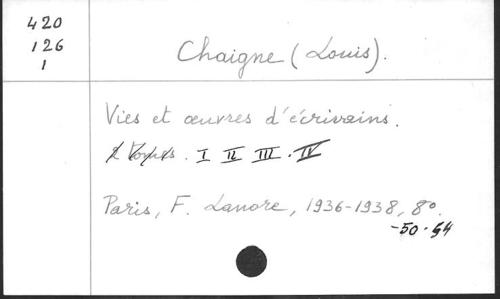 420
126
1
Chaigne (Louis).
Vies et œuvres d'écrivains.
I II III. IV
Paris, F. Lanore, 1936-1938, 8o.
-50-54